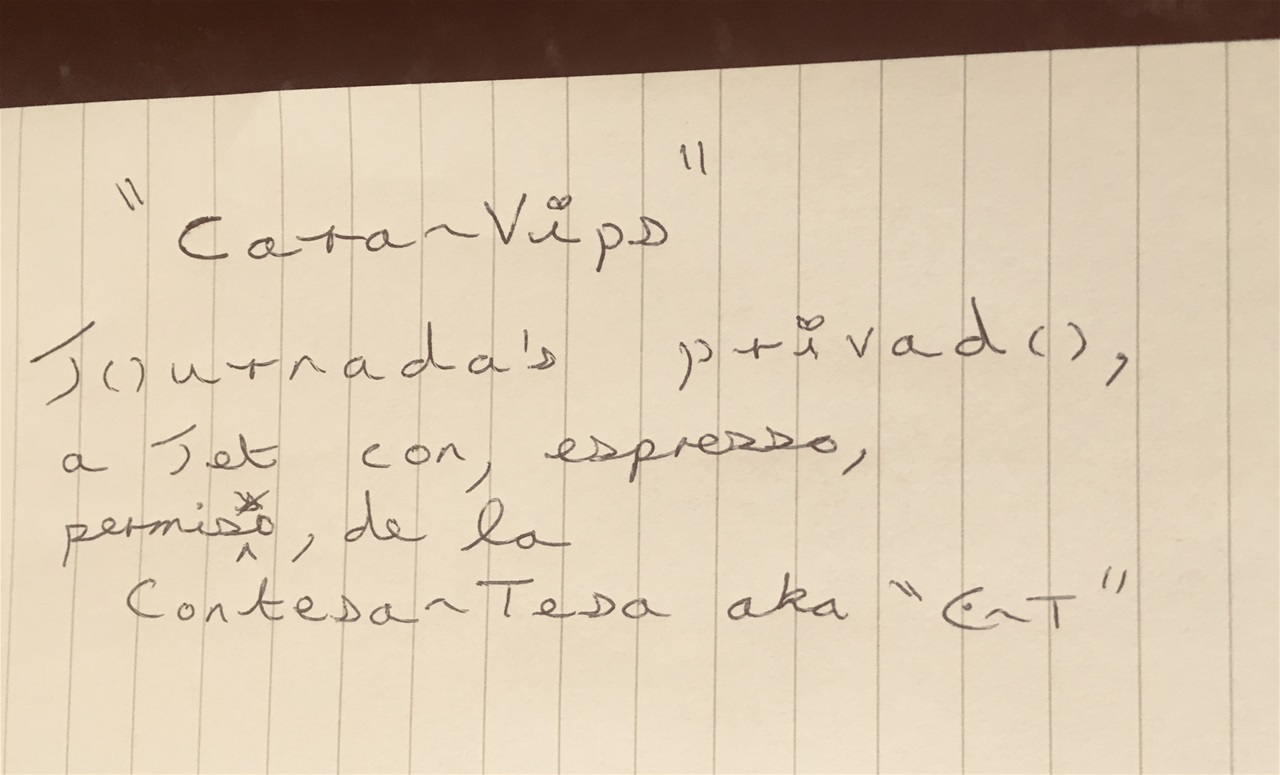 "Cara~Vips"
J()urnada's privad(),
a Jet con, espresso,
permiso, de la
Contesa~Tesa aka "C~T"